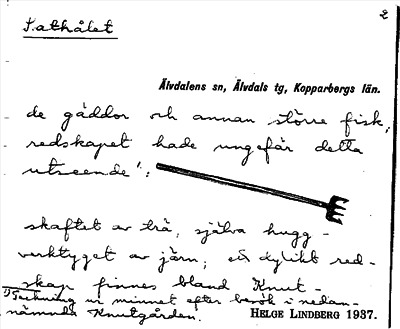 2
Älvdalens sn, Älvdals tg, Kopparbergs län.
de gäddor och annan större fisk,
redskapet hade ungefär detta
utseende¹:
skaftet av trä, själva hugg-
verktyget av järn; ett dylikt red-
skap finnes bland Knut-
¹⁾Teckning ur minnet efter besök i nedan-
nämnda Knutgården. HELGE LINDBERG 1937.